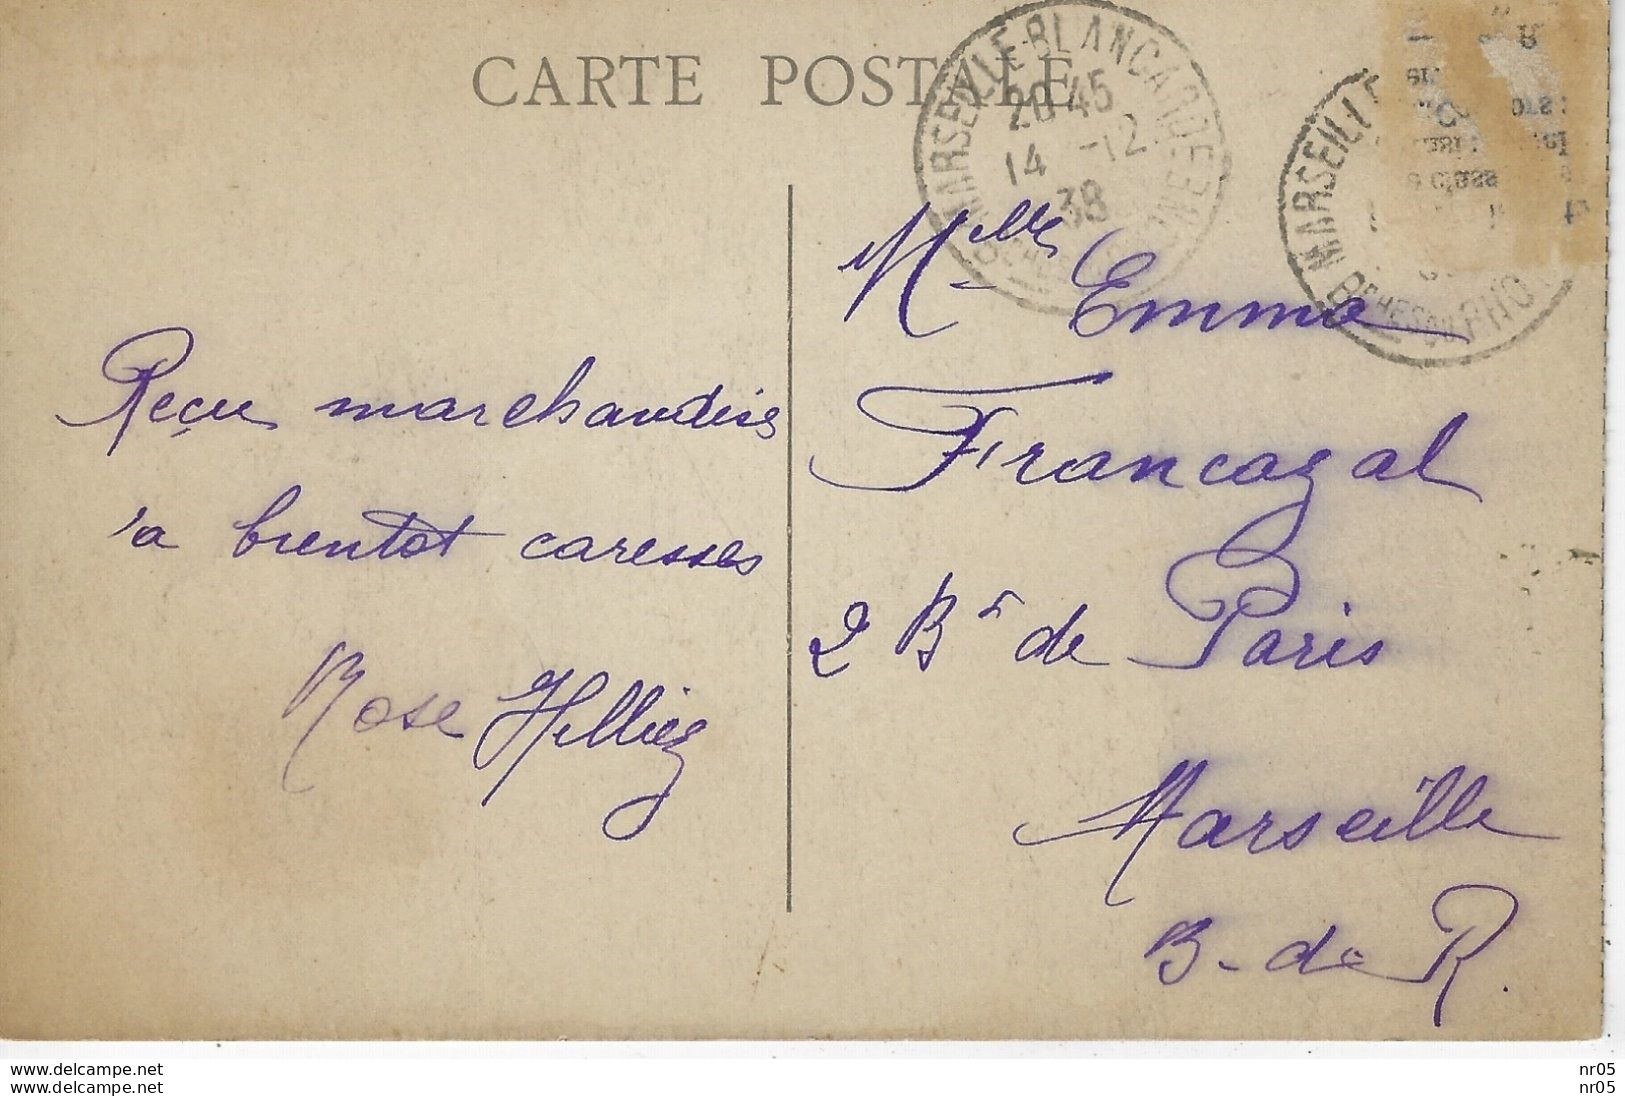 CARTE POSTALE
MARSEILLE-BLANCARDE
20 45
14 -12
38
MARSEILLE
BCHES DU RHO
Mlle Emma
Francazal
2 Bd de Paris
Marseille
B. de R.
Reçu marchandise
'a bientot caresses
Rose
www.delcampe.net
www.delcampe.net
nr05
nr05